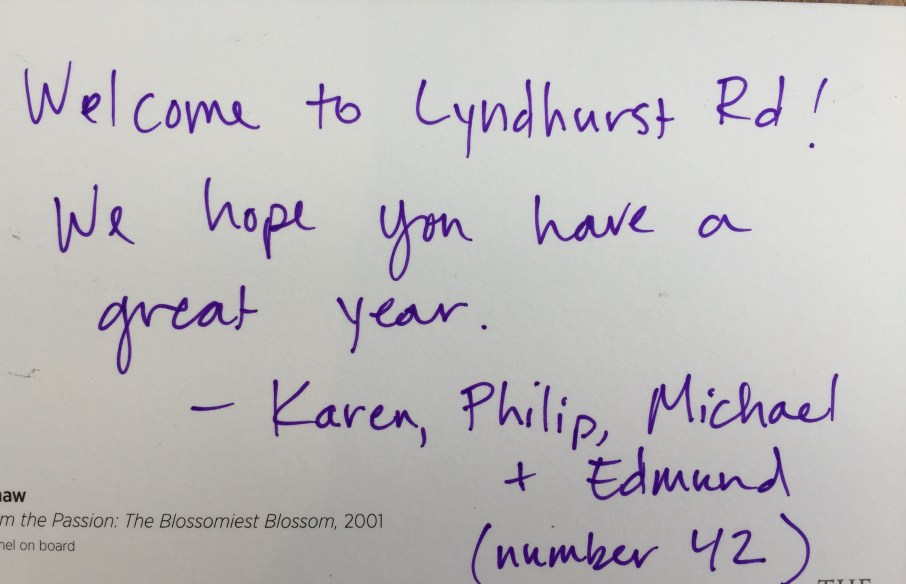 Welcome to Lyndhurst Rd!
We hope you have a
great year.
- Karen, Philip, Michael
+ Edmund
(number 42)
haw
m the Passion: The Blossomiest Blossom, 2001
nel on board
THE